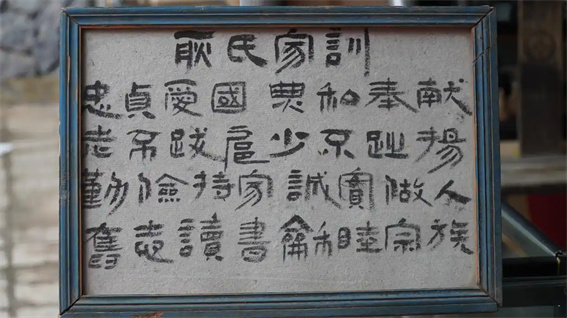 耿氏家訓
忠貞愛國 和奉献
跋扈少趾揚
勤儉持家誠實做人
奮志讀書龢睦宗族